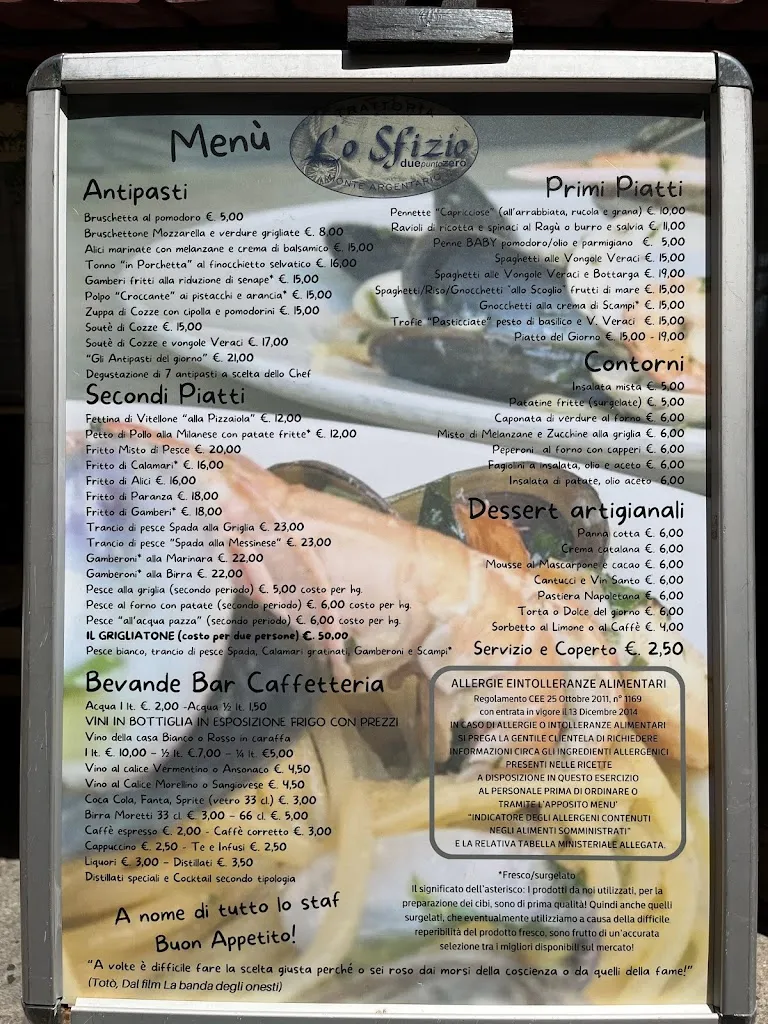 Menù
TRATTORIA
Lo Sfizio
duepuntozero
MONTE ARGENTARIO
Antipasti
Bruschetta al pomodoro €. 5,00
Bruschettone Mozzarella e verdure grigliate €. 8,00
Alici marinate con melanzane e crema di balsamico €. 15,00
Tonno "in Porchetta" al finocchietto selvatico €. 16,00
Gamberi fritti alla riduzione di senape* €. 15,00
Polpo "Croccante" ai pistacchi e arancia* €. 15,00
Zuppa di Cozze con cipolla e pomodorini €. 15,00
Soutè di Cozze €. 15,00
Soutè di Cozze e vongole Veraci €. 17,00
"Gli Antipasti del giorno" €. 21,00
Degustazione di 7 antipasti a scelta dello Chef
Primi Piatti
Pennette "Capricciose" (all'arrabbiata, rucola e grana) €. 10,00
Ravioli di ricotta e spinaci al Ragù o burro e salvia €. 11,00
Penne BABY pomodoro/olio e parmigiano €. 5,00
Spaghetti alle Vongole Veraci €. 15,00
Spaghetti alle Vongole Veraci e Bottarga €. 19,00
Spaghetti/Riso/Gnocchetti "allo Scoglio" frutti di mare €. 15,00
Gnocchetti alla crema di Scampi* €. 15,00
Trofie "Pasticciate" pesto di basilico e V. Veraci €. 15,00
Piatto del Giorno €. 15,00 - 19,00
Secondi Piatti
Fettina di Vitellone "alla Pizzaiola" €. 12,00
Petto di Pollo alla Milanese con patate fritte* €. 12,00
Fritto Misto di Pesce €. 20,00
Fritto di Calamari* €. 16,00
Fritto di Alici €. 16,00
Fritto di Paranza €. 18,00
Fritto di Gamberi* €. 18,00
Trancio di pesce Spada alla Griglia €. 23,00
Trancio di pesce "Spada alla Messinese" €. 23,00
Gamberoni* alla Marinara €. 22,00
Gamberoni* alla Birra €. 22,00
Pesce alla griglia (secondo periodo) €. 5,00 costo per hg.
Pesce al forno con patate (secondo periodo) €. 6,00 costo per hg.
Pesce "all'acqua pazza" (secondo periodo) €. 6,00 costo per hg.
IL GRIGLIATONE (costo per due persone) €. 50,00
Pesce bianco, trancio di pesce Spada, Calamari gratinati, Gamberoni e Scampi*
Contorni
Insalata mista €. 5,00
Patatine fritte (surgelate) €. 5,00
Caponata di verdure al forno €. 6,00
Misto di Melanzane e Zucchine alla griglia €. 6,00
Peperoni al forno con capperi €. 6,00
Fagiolini a insalata, olio e aceto €. 6,00
Insalata di patate, olio aceto 6,00
Dessert artigianali
Panna cotta €. 6,00
Crema catalana €. 6,00
Mousse al Mascarpone e cacao €. 6,00
Cantucci e Vin Santo €. 6,00
Pastiera Napoletana €. 6,00
Torta o Dolce del giorno €. 6,00
Sorbetto al Limone o al Caffè €. 4,00
Servizio e Coperto €. 2,50
Bevande Bar Caffetteria
Acqua 1 lt. €. 2,00 -Acqua ½ lt. 1,50
VINI IN BOTTIGLIA IN ESPOSIZIONE FRIGO CON PREZZI
Vino della casa Bianco o Rosso in caraffa
1 lt. €. 10,00 - ½ lt €.7,00 - ¼ lt €5,00
Vino al calice Vermentino o Ansonaco €. 4,50
Vino al Calice Morellino o Sangiovese €. 4,50
Coca Cola, Fanta, Sprite (vetro 33 cl.) €. 3,00
Birra Moretti 33 cl. €. 3,00 - 66 cl. €. 5,00
Caffè espresso €. 2,00 - Caffè corretto €. 3,00
Cappuccino €. 2,50 - Te e Infusi €. 2,50
Liquori €. 3,00 - Distillati €. 3,50
Distillati speciali e Cocktail secondo tipologia
ALLERGIE EINTOLLERANZE ALIMENTARI
Regolamento CEE 25 Ottobre 2011, n° 1169
con entrata in vigore il 13 Dicembre 2014
IN CASO DI ALLERGIE O INTOLLERANZE ALIMENTARI
SI PREGA LA GENTILE CLIENTELA DI RICHIEDERE
INFORMAZIONI CIRCA GLI INGREDIENTI ALLERGENICI
PRESENTI NELLE RICETTE
A DISPOSIZIONE IN QUESTO ESERCIZIO
AL PERSONALE PRIMA DI ORDINARE O
TRAMITE L'APPOSITO MENU'
"INDICATORE DEGLI ALLERGENI CONTENUTI
NEGLI ALIMENTI SOMMINISTRATI"
E LA RELATIVA TABELLA MINISTERIALE ALLEGATA.
*Fresco/surgelato
Il significato dell'asterisco: I prodotti da noi utilizzati, per la
preparazione dei cibi, sono di prima qualità! Quindi anche quelli
surgelati, che eventualmente utilizziamo a causa della difficile
reperibilità del prodotto fresco, sono frutto di un'accurata
selezione tra i migliori disponibili sul mercato!
A nome di tutto lo staf
Buon Appetito!
"A volte è difficile fare la scelta giusta perché o sei roso dai morsi della coscienza o da quelli della fame!"
(Totò, Dal film La banda degli onesti)